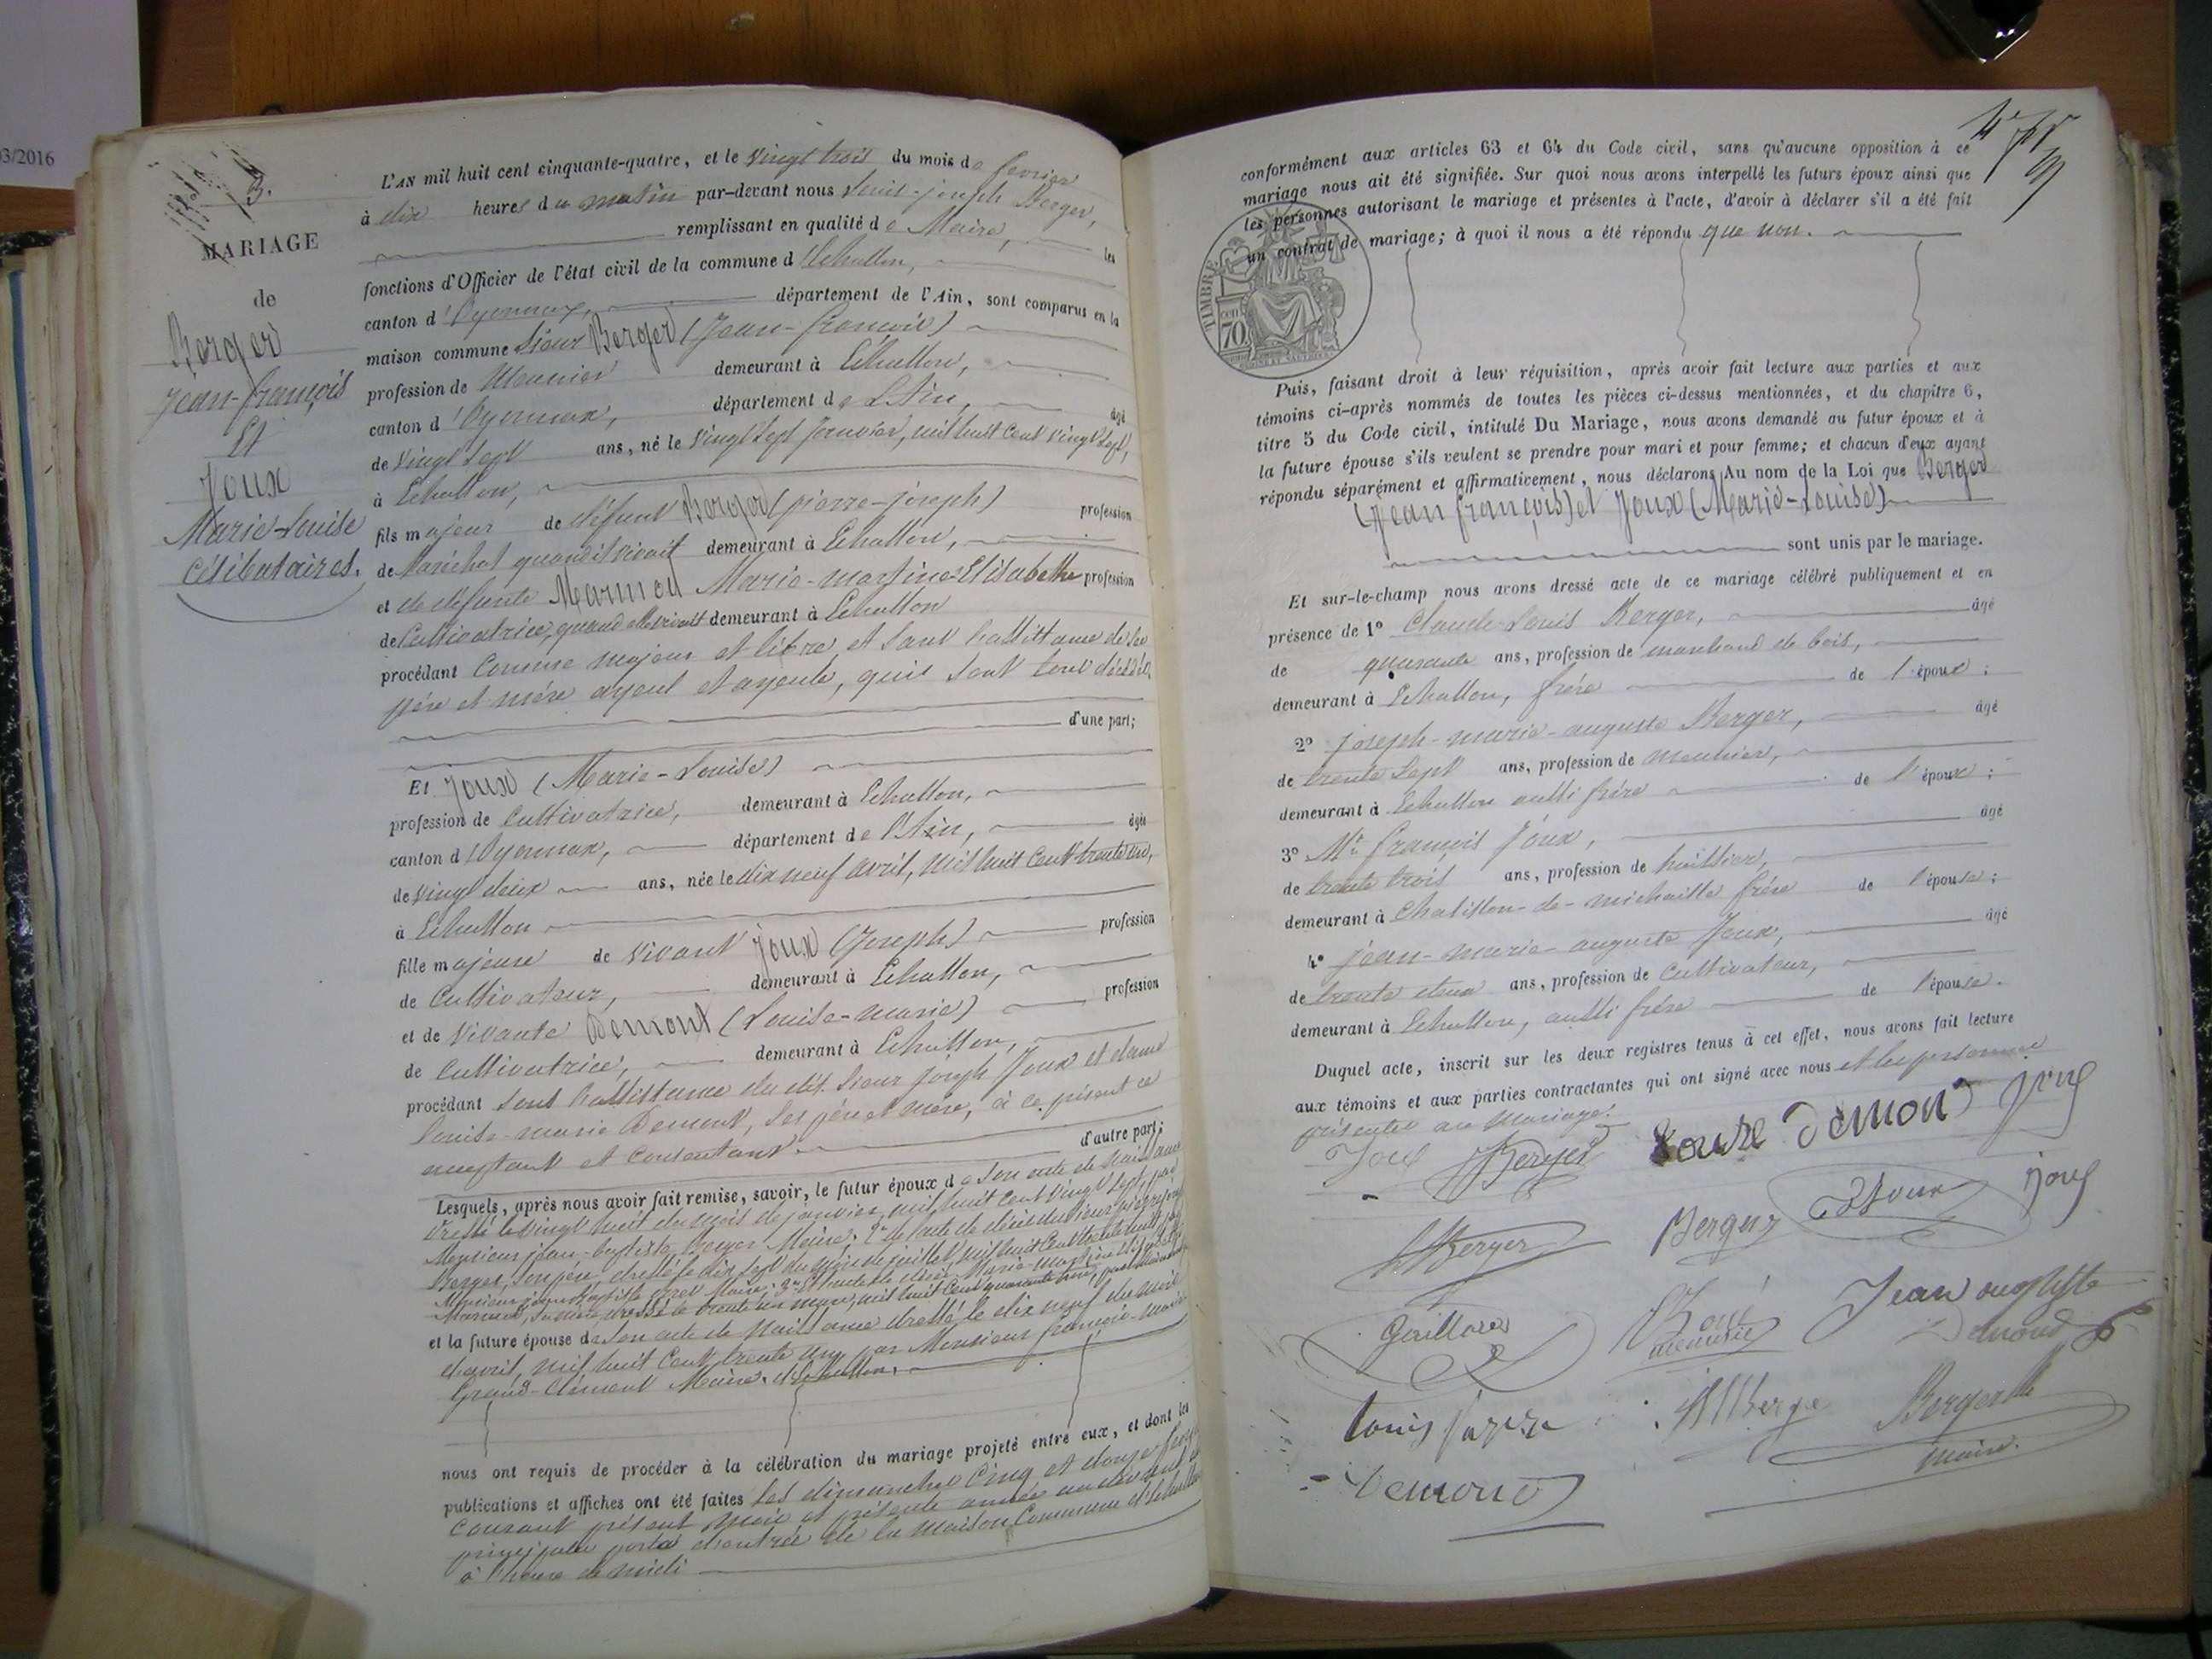 03/2016
3.
MARIAGE
de
Berger
Jean-françois
Et
Joux
Marie-Louise
Célibataires.
L'AN mil huit cent cinquante-quatre, et le vingt trois du mois de février
à dix heures du matin par-devant nous Louis-joseph Berger,
remplissant en qualité de Maire, les
fonctions d'Officier de l'état civil de la commune d'Echallon,
canton d'Oyonnax, département de l'Ain, sont comparus en la
maison commune Sieur Berger (Jean-françois)
profession de Meunier demeurant à Echallon,
canton d'Oyonnax, département de L'Ain, âgé
de vingt sept ans, né le vingt sept janvier, mil huit cent vingt sept,
à Echallon,
fils majeur de défunt Berger (pierre-joseph) profession
de Maréchal quand il vivait demeurant à Echallon,
et de défunte Marie-martine-Elisabethe profession
de Cultivatrice, quand elle vivait demeurant à Echallon
procédant comme majeur et libre et sans l'assistance de ses
père et mère ayeul et ayeule, qui sont tous décédés,
d'une part;
Et Joux (Marie-Louise)
profession de Cultivatrice, demeurant à Echallon,
canton d'Oyonnax, département de l'Ain, âgée
de vingt deux ans, née le dix neuf avril, mil huit cent trente un,
à Echallon
fille majeure de vivant Joux (Joseph) profession
de Cultivateur, demeurant à Echallon,
et de vivante Demont (Louise-marie) profession
de Cultivatrice, demeurant à Echallon,
procédant sous l'assistance du dit Sieur joseph Joux et dame
Louise-marie Demont, ses père et mère, à ce présent
acceptant et consentant d'autre part;
Lesquels, après nous avoir fait remise, savoir, le futur époux de son acte de naissance
dressé le vingt huit du mois de janvier, mil huit cent vingt sept, par
Monsieur jean-baptiste Berger Maire. 2º de l'acte de décès du Sieur pierre joseph
Berger, son père, dressé le dix sept du mois de juillet mil huit cent
Monsieur Maire; 3º de l'acte de décès Marie-martine Elisabeth
sa mère, dressé le trente un mars, mil huit cent quarante
et la future épouse de son acte de naissance dressé le dix neuf du mois
d'avril, mil huit cent trente un par Monsieur françois-marie
Grand-Clément Maire d'Echallon.
nous ont requis de procéder à la célébration du mariage projeté entre eux, et dont les
publications et affiches ont été faites les dimanches Cinq et douze février
courant présent mois et présente année au devant de la
principale porte d'entrée de la maison Commune d'Echallon
à l'heure de midi
conformément aux articles 63 et 64 du Code civil, sans qu'aucune opposition à ce
mariage nous ait été signifiée. Sur quoi nous avons interpellé les futurs époux ainsi que
les personnes autorisant le mariage et présentes à l'acte, d'avoir à déclarer s'il a été fait
un contrat de mariage; à quoi il nous a été répondu que non.
TIMBRE
70
Puis, faisant droit à leur réquisition, après avoir fait lecture aux parties et aux
témoins ci-après nommés de toutes les pièces ci-dessus mentionnées, et du chapitre 6,
titre 5 du Code civil, intitulé Du Mariage, nous avons demandé au futur époux et à
la future épouse s'ils veulent se prendre pour mari et pour femme; et chacun d'eux ayant
répondu séparément et affirmativement, nous déclarons Au nom de la Loi que Berger
(Jean françois) et Joux (Marie-Louise)
sont unis par le mariage.
Et sur-le-champ nous avons dressé acte de ce mariage célébré publiquement et en
présence de 1º Claude-Louis Berger, âgé
de quarante ans, profession de marchand de bois,
demeurant à Echallon, frère de l'époux;
2º joseph-marie-auguste Berger, âgé
de trente sept ans, profession de meunier,
demeurant à Echallon aussi frère de l'époux;
3º Mr. françois Joux, âgé
de trente trois ans, profession de huissier,
demeurant à Chatillon-de-michaille frère de l'épouse;
4º jean-marie-auguste Joux, âgé
de trente deux ans, profession de Cultivateur,
demeurant à Echallon, aussi frère de l'épouse.
Duquel acte, inscrit sur les deux registres tenus à cet effet, nous avons fait lecture
aux témoins et aux parties contractantes qui ont signé avec nous et les personnes
présentes au mariage.
Joux Berger Louise demond Joux
Berger Berger Joux Joux
Gaillard Jean auguste
Demond
Louis Berger
maire.
Demond